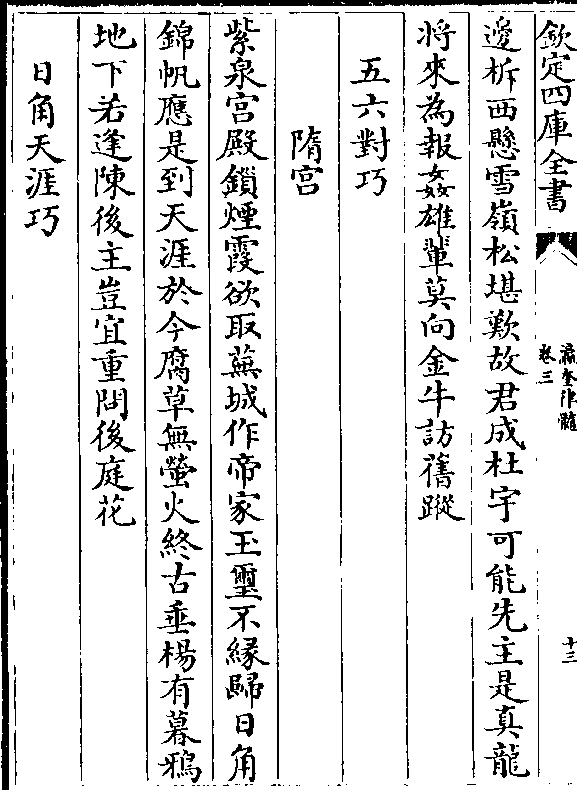 欽定四庫全書
瀛奎律髓
卷三
十三
邊柝西懸雪嶺松堪歎故君成杜宇可能先主是真龍
將來為報姦雄輩莫向金牛訪舊蹤
五六對巧
隋宮
紫泉宮殿鎖煙霞欲取蕪城作帝家玉璽不緣歸日角
錦帆應是到天涯於今腐草無螢火終古垂楊有暮鴉
地下若逢陳後主豈宜重問後庭花
日角天涯巧